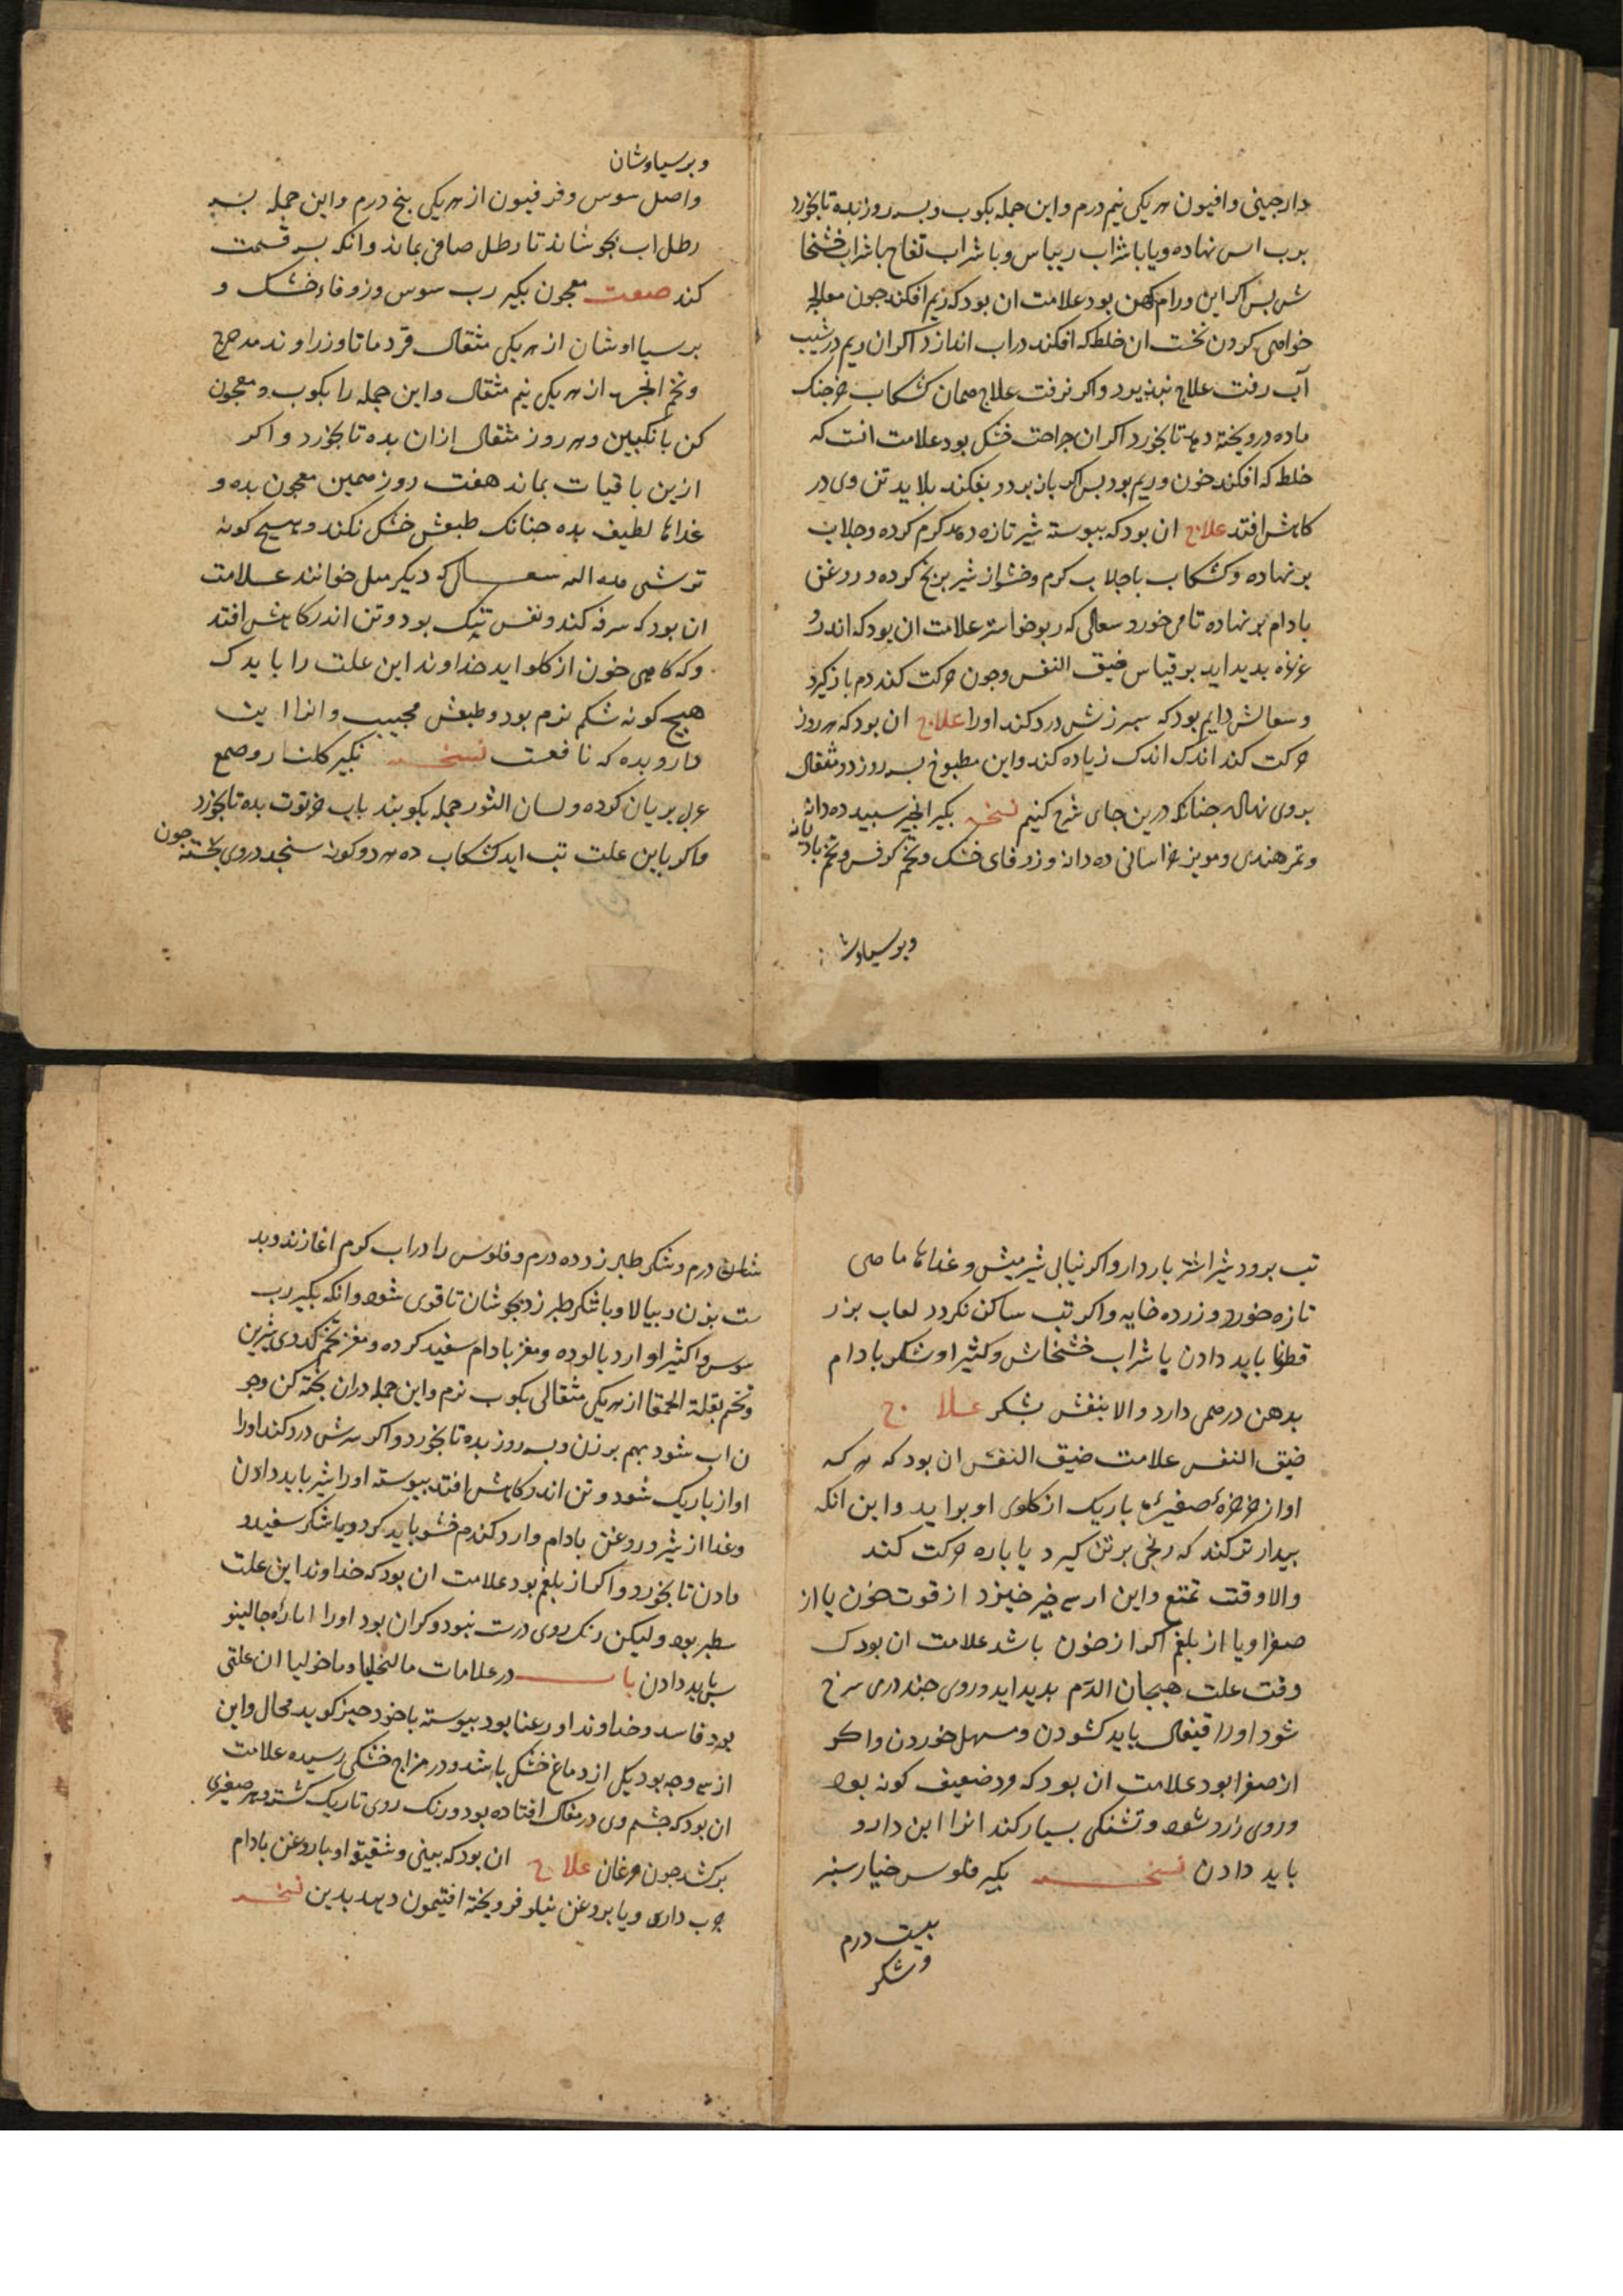 دارچینی وافیون هر یکی نیم درم واین جمله بکوب وبسه روز بده تا بخورد
برب اس نهاده ویا باشراب ریباس وبا شراب تفاح باشراب خشخا
ش بس اکر این ورام کهن بود علامت ان بود که ریم افکند جون معالجه
خواهی کردن نخست ان خلط که افکند دراب انداز د اکر ان ریم در شیب
آب رفت علاج نبذیرد واکر نرفت علاج همان کشکاب خرجنک
ماده درو پخته دهد تا بخورد اکر ان جراحت خشک بود علامت انست که
خلط که افکند خون وریم بود بس اکر باز بردو بفکند بلا ید تن وی در
کاهش افتد علاج ان بود که بیوسته شیر تازه دهد کرم کرده وجلاب
بر نهاده وکشکاب باجلاب کرم وخشو از شیر برنج کرده وروغن
بادام بر نهاده تا می خورد سعالی که ربو خوانند علامت ان بود که اندر
غرغره بدید اید بر قیاس ضیق النفس وجون حرکت کند دم باز نکیرد
وسعالش دایم بود که سبرزش درد کند اورا علاج ان بود که هر روز
حرکت کند اندک اندک زیاده کند واین مطبوخ بسه روز دو مثقال
بروی نهاله جنانکه درین جای شرح کنیم نسخه بکیر انجیر سبید ده دانه
وتمر هندی ومویز خراسانی ده دانه وزوفای خشک وتخم کرفس وتخم بادیانه
وبرسیاوشا
وبرسیاوشان
واصل سوس وفرفیون از هر یکی بنج درم واین جمله بسه
رطل اب بجوشاند تا رطل صافی بماند وانکه بسه قسمت
کند صفت معجون بکیر رب سوس وزوفاء خشک و
برسیااوشان از هر یکی مثقال قردماتا وزراوند مدحرج
وتخم انجره از هر یکی نیم مثقال واین جمله را بکوب ومعجون
کن بانکبین وهر روز مثقال ازان بده تا بخورد واکر
ازین باقیات بماند هفت روز همین معجون بده و
غداها لطیف بده جنانک طبعش خشک نکند وهیج کونه
ترشی سعال که دیکر سل خوانند علامت
ان بود که سرفه کند ونفس تنک بود وتن اندر کاهش افتد
وکه کاهی خون از کلو اید خداوند این علت را باید ک
هیج کونه شکم نرم بود وطبعش مجیب وانرا این
دارو بده که نافعست نسخه بکیر کلنار وصمغ
عربی بریان کرده ولسان الثور جمله بکوبند باب خرتوت بده تا بخورد
واکر باین علت تب اید کشکاب ده هر دو کونه سنجد دروی پخته جون
تب برود شیر اشتر باز دار واکر نیابی شیر میش وغداها ماهی
تازه خورد وزرده خایه واکر تب ساکن نکردد لعاب بزر
قطونا باید دادن با شراب خشخاش وکثیرا وشکر بادام
بدهن درهمی دارد والا بنفش بشکر علاج
ضیق النفس علامت ضیق النفس ان بود که هر که
اواز خرخره صفیر باریک از کلوی او براید واین انکه
بیدارتر کند که رنجی برتن کیرد یا باره حرکت کند
والا وقت تمتع واین از سه جیز خیزد از قوت خون یا از
صفرا ویا از بلغم اکر از خون باشد علامت ان بود ک
وقت علت هیجان الدم بدید اید وروی جندری سرخ
شود اورا قیفال باید کشودن ومسهل خوردن واکر
از صفرا بود علامت ان بود که مرد ضعیف کونه بود
وروی زرد شود وتشنکی بسیار کند انرا این دارو
باید دادن نسخه بکیر فلوس خیارسنبر
بیست درم
وشکر
شانزده درم وشکر طبرزد ده درم وفلوس را دراب کرم اغازند وبد
ست بزن وبیالا وباشکر طبرزد بجوشان تا قوی شود وانکه بکیر رب
سوس واکثیرا وارد بالوده ومغز بادام سفید کرده ومغز تخم کدوی شیرین
وتخم بقلة الحمقا از هر یکی مثقالی بکوب نرم واین جمله دران پخته کن وجو
ن اب شود بهم برزن وبسه روز بده تا بخورد واکر سرش درد کند اورا
اواز باریک شود وتن اندر کاهش افتد بیوسته اورا شیر باید دادن
وغدا از شیر وروغن بادام وارد کندم خشو باید کرد ویا شکر سفید
دادن تا بخورد واکر از بلغم بود علامت ان بود که خداوند این علت
سطبر بود ولیکن رنک روی درست نبود وکران بود اورا ایاره جالینو
س باید دادن باب در علامات مالنخولیا وماخولیا ان علتی
بود فاسد وخداوند او رعنا بود بیوسته باخود جیز کوید محال واین
از سه وجه بود یکی از دماغ خشک باشد ودر مزاج خشکی رسیده علامت
ان بود که جشم وی در مغاک افتاده بود ورنک روی تاریک کشته وهر صفیری
برکشد جون مرغان علاج ان بود که بینی وشقیقه او باروغن بادام
جرب داری ویا بروغن نیلوفر وپخته افتیمون دهد بدین نسخه